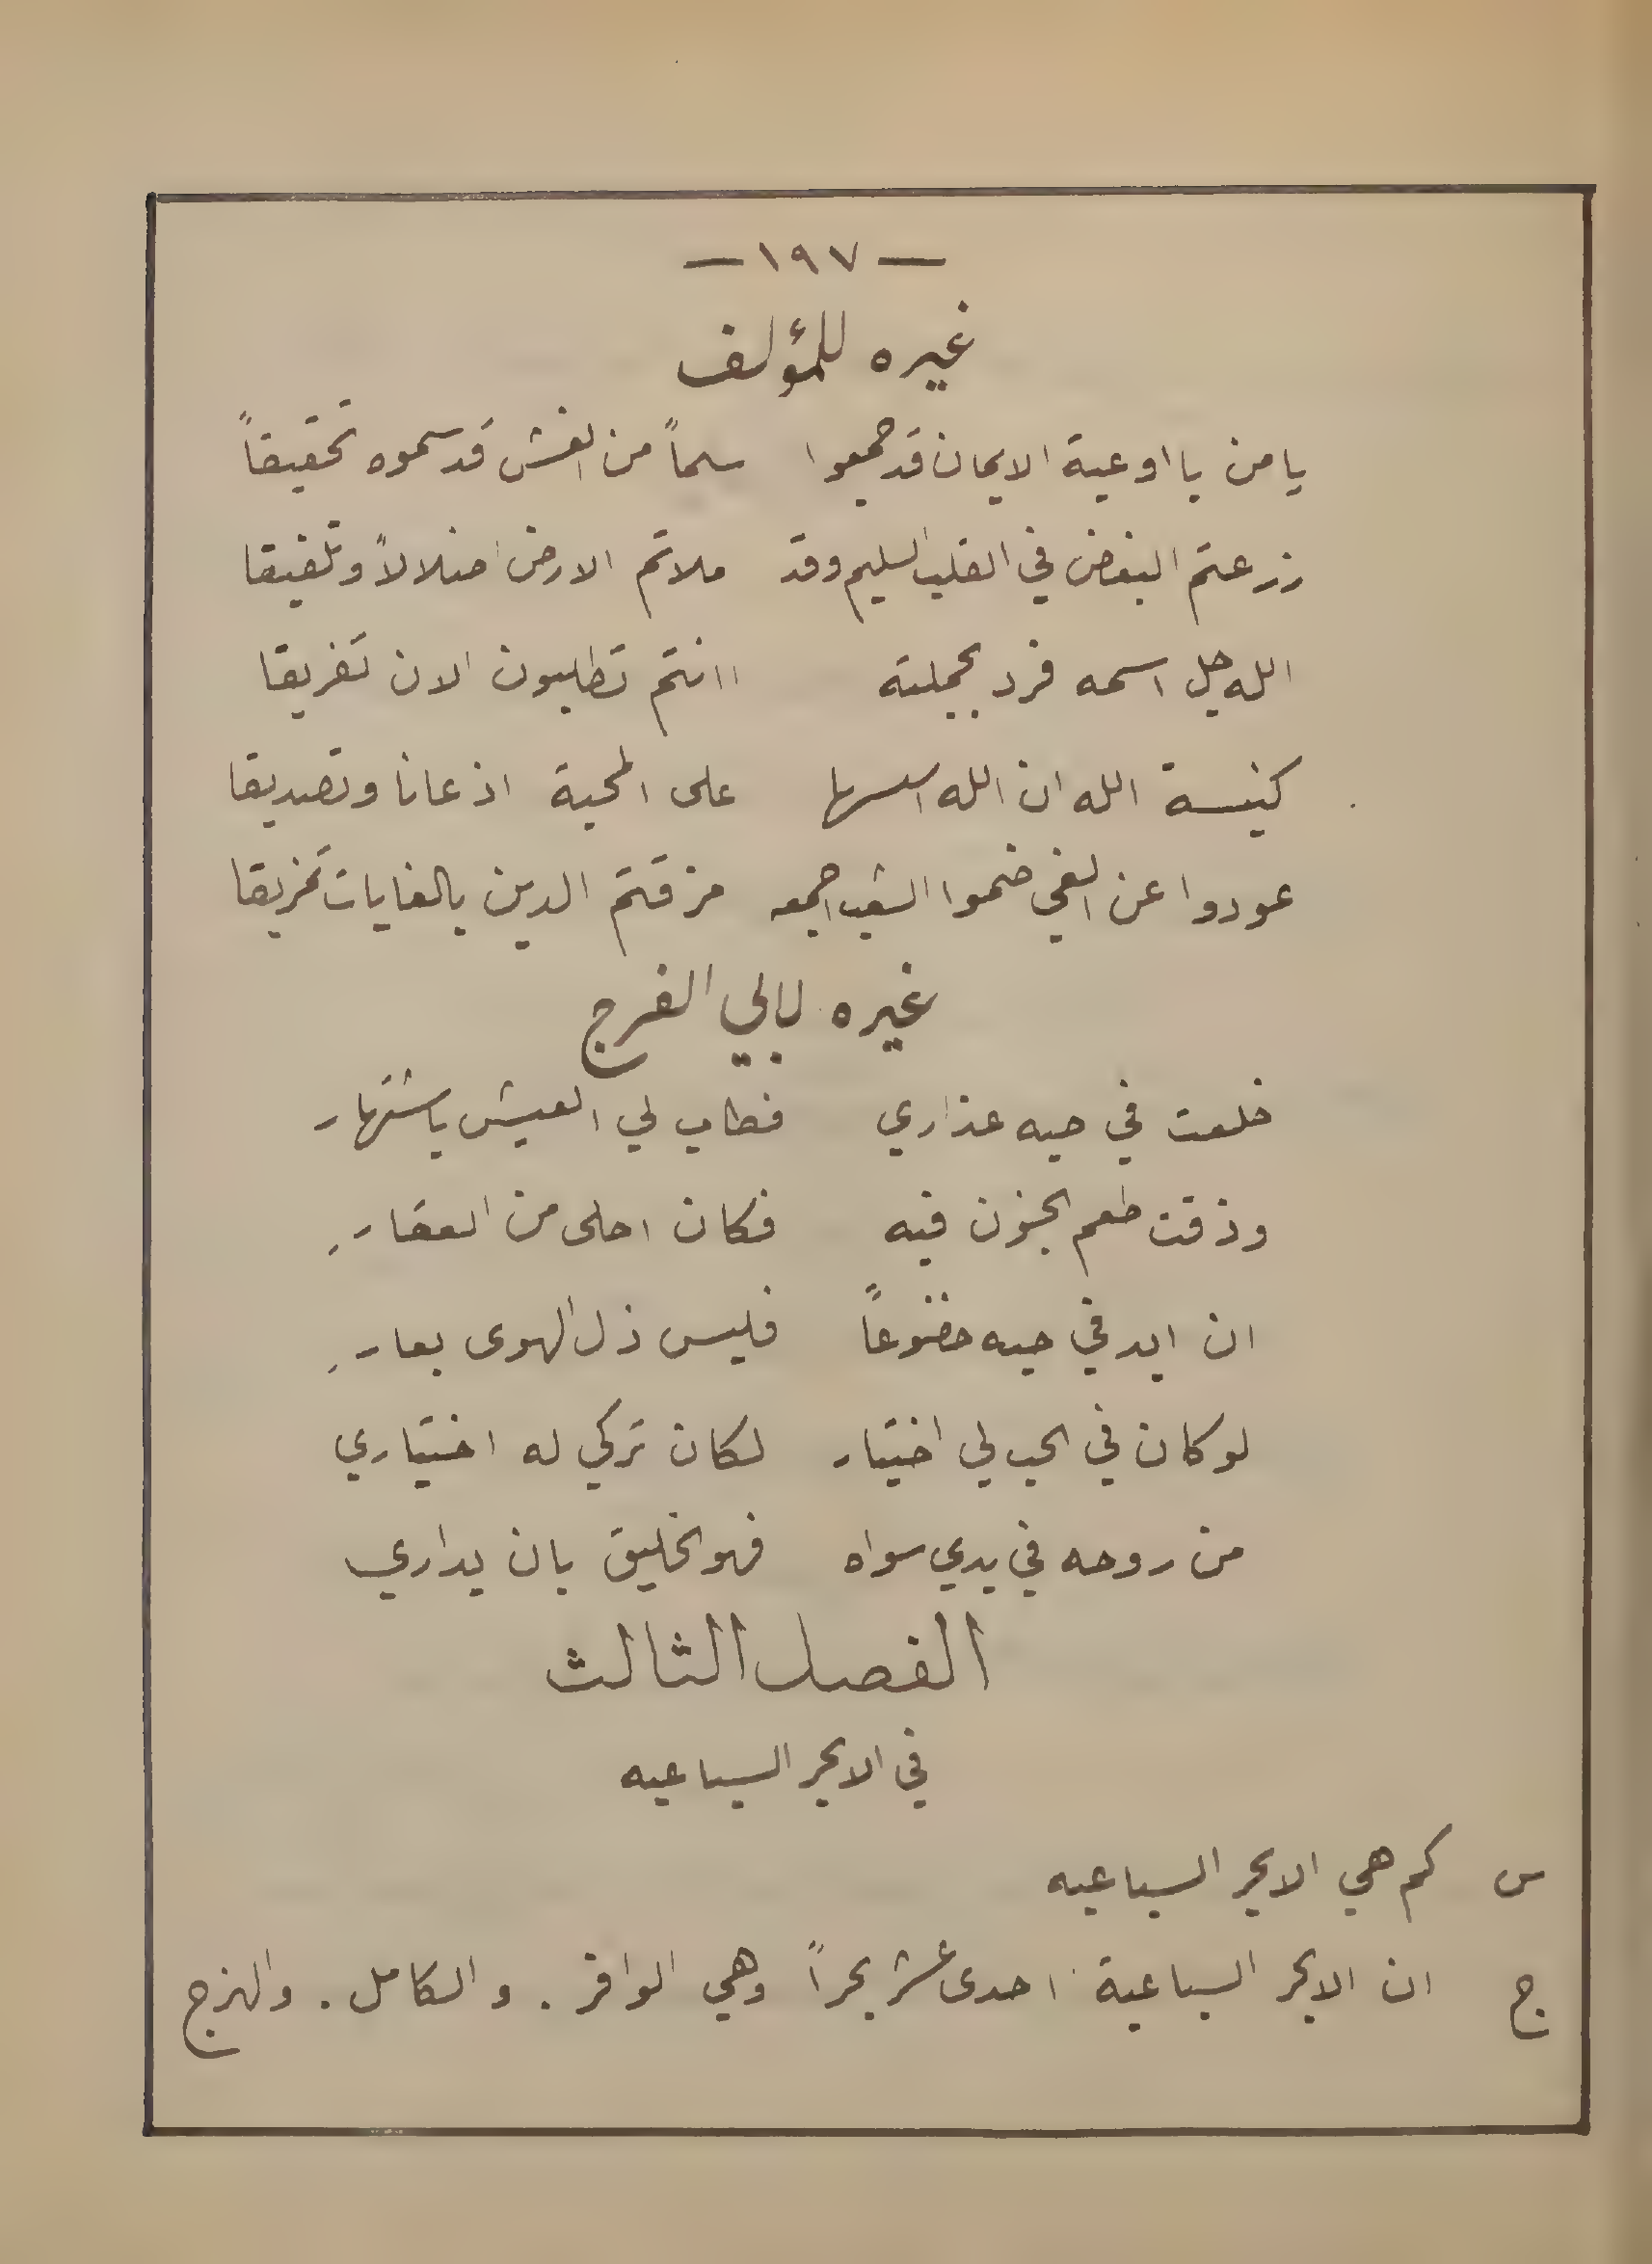 — ١٩٧ —
غيره للمؤلف
يا من يا اوعية الايمان قد جمعوا سماً من الغش قد سموه تحقيقاً
زرعتم البغض في القلب السليم وقد ملاتم الارض اضلالاً وتلفيقا
الله جل اسمه فرد بجملته اانتم تطلبون الان تفريقا
كنيسة الله ان الله اسسها على المحبة اذعانا وتصديقا
عودوا عن الغي ضموا الشعب اجمعه مزقتم الدين بالغايات تمزيقا
غيره لابي الفرج
خلعت في حبه عذاري فطاب لي العيش باشتهار
وذقت طعم الجنون فيه فكان احلى من العقارِ
ان ابد في حبه خضوعاً فليس ذل الهوى بعارِ
لو كان في الحب لي اختيار لكان تركي له اختياري
من روحه في يدي سواه فهو الخليق بان يداري
الفصل الثالث
في الابحر السباعيه
س كم هي الابحر السباعيه
ج ان الابحر السباعية احدى عشر بحراً وهي الوافر . والكامل . والهزج